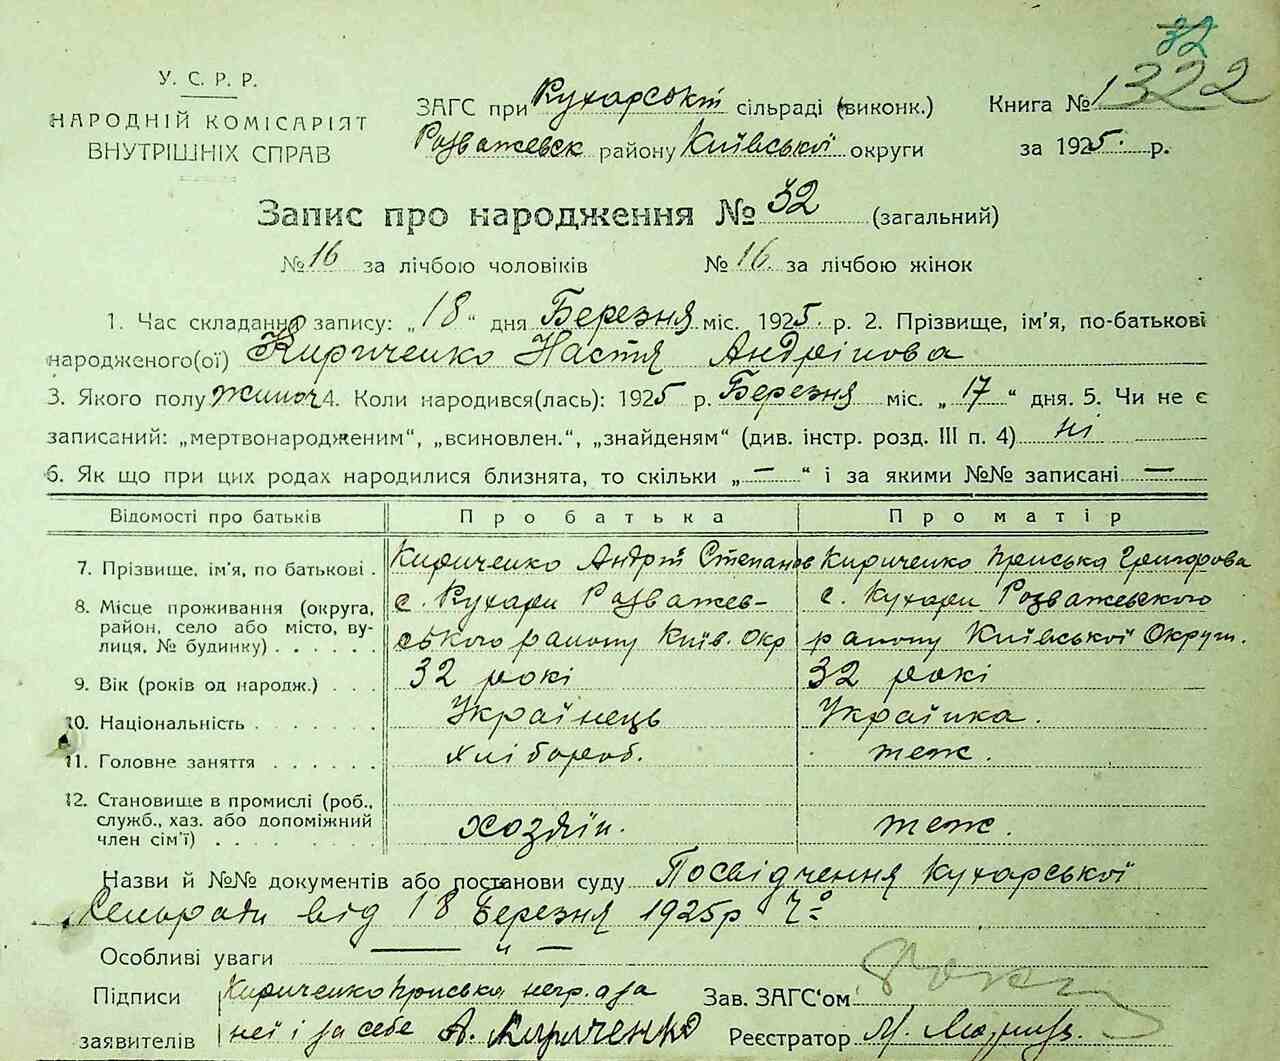 32
1322
У. С. Р. Р.
НАРОДНІЙ КОМІСАРІЯТ
ВНУТРІШНІХ СПРАВ
ЗАГС при Кухарські сільраді (виконк.)
Розважевск району Київської округи
Книга №
за 1925. р.
Запис про народження № 32 (загальний)
№ 16 за лічбою чоловіків № 16. за лічбою жінок
1. Час складання запису: „18“ дня Березня міс. 1925. р. 2. Прізвище, ім'я, по-батькові
народженого(ої) Кириченко Настя Андріпова
3. Якого полу жиноч 4. Коли народився(лась): 1925 р. Березня міс. „17“ дня. 5. Чи не є
записаний: „мертвонародженим“, „всиновлен.“, „знайденям“ (див. інстр. розд. III п. 4) ні
6. Як що при цих родах народилися близнята, то скільки „—“ і за якими №№ записані —
Відомості про батьків Про батька Про матір
7. Прізвище, ім'я, по батькові . Кириченко Андрій Степанов Кириченко Приська Григорова
8. Місце проживання (округа, район, село або місто, вулиця, № будинку) . . . . . . с. Кухари Розважев- с. Кухари Розважевского
ського району Київ. Окр району Київської Округи.
9. Вік (років од народж.) . . . 32 рокі 32 рокі
10. Національність . . . . . . . Українець Українка.
11. Головне заняття . . . . . . хлібороб. теж.
12. Становище в промислі (роб., служб., хаз. або допоміжний член сім'ї) . . . . . . . . хозяїн. теж.
Назви й №№ документів або постанови суду Посвідчення Кухарської
Сельради від 18 Березня 1925р
Особливі уваги — „ —
Підписи заявителів Кириченко Приська негр. а за
неї і за себе А. Кириченко
Зав. ЗАГС'ом
Реєстратор М.